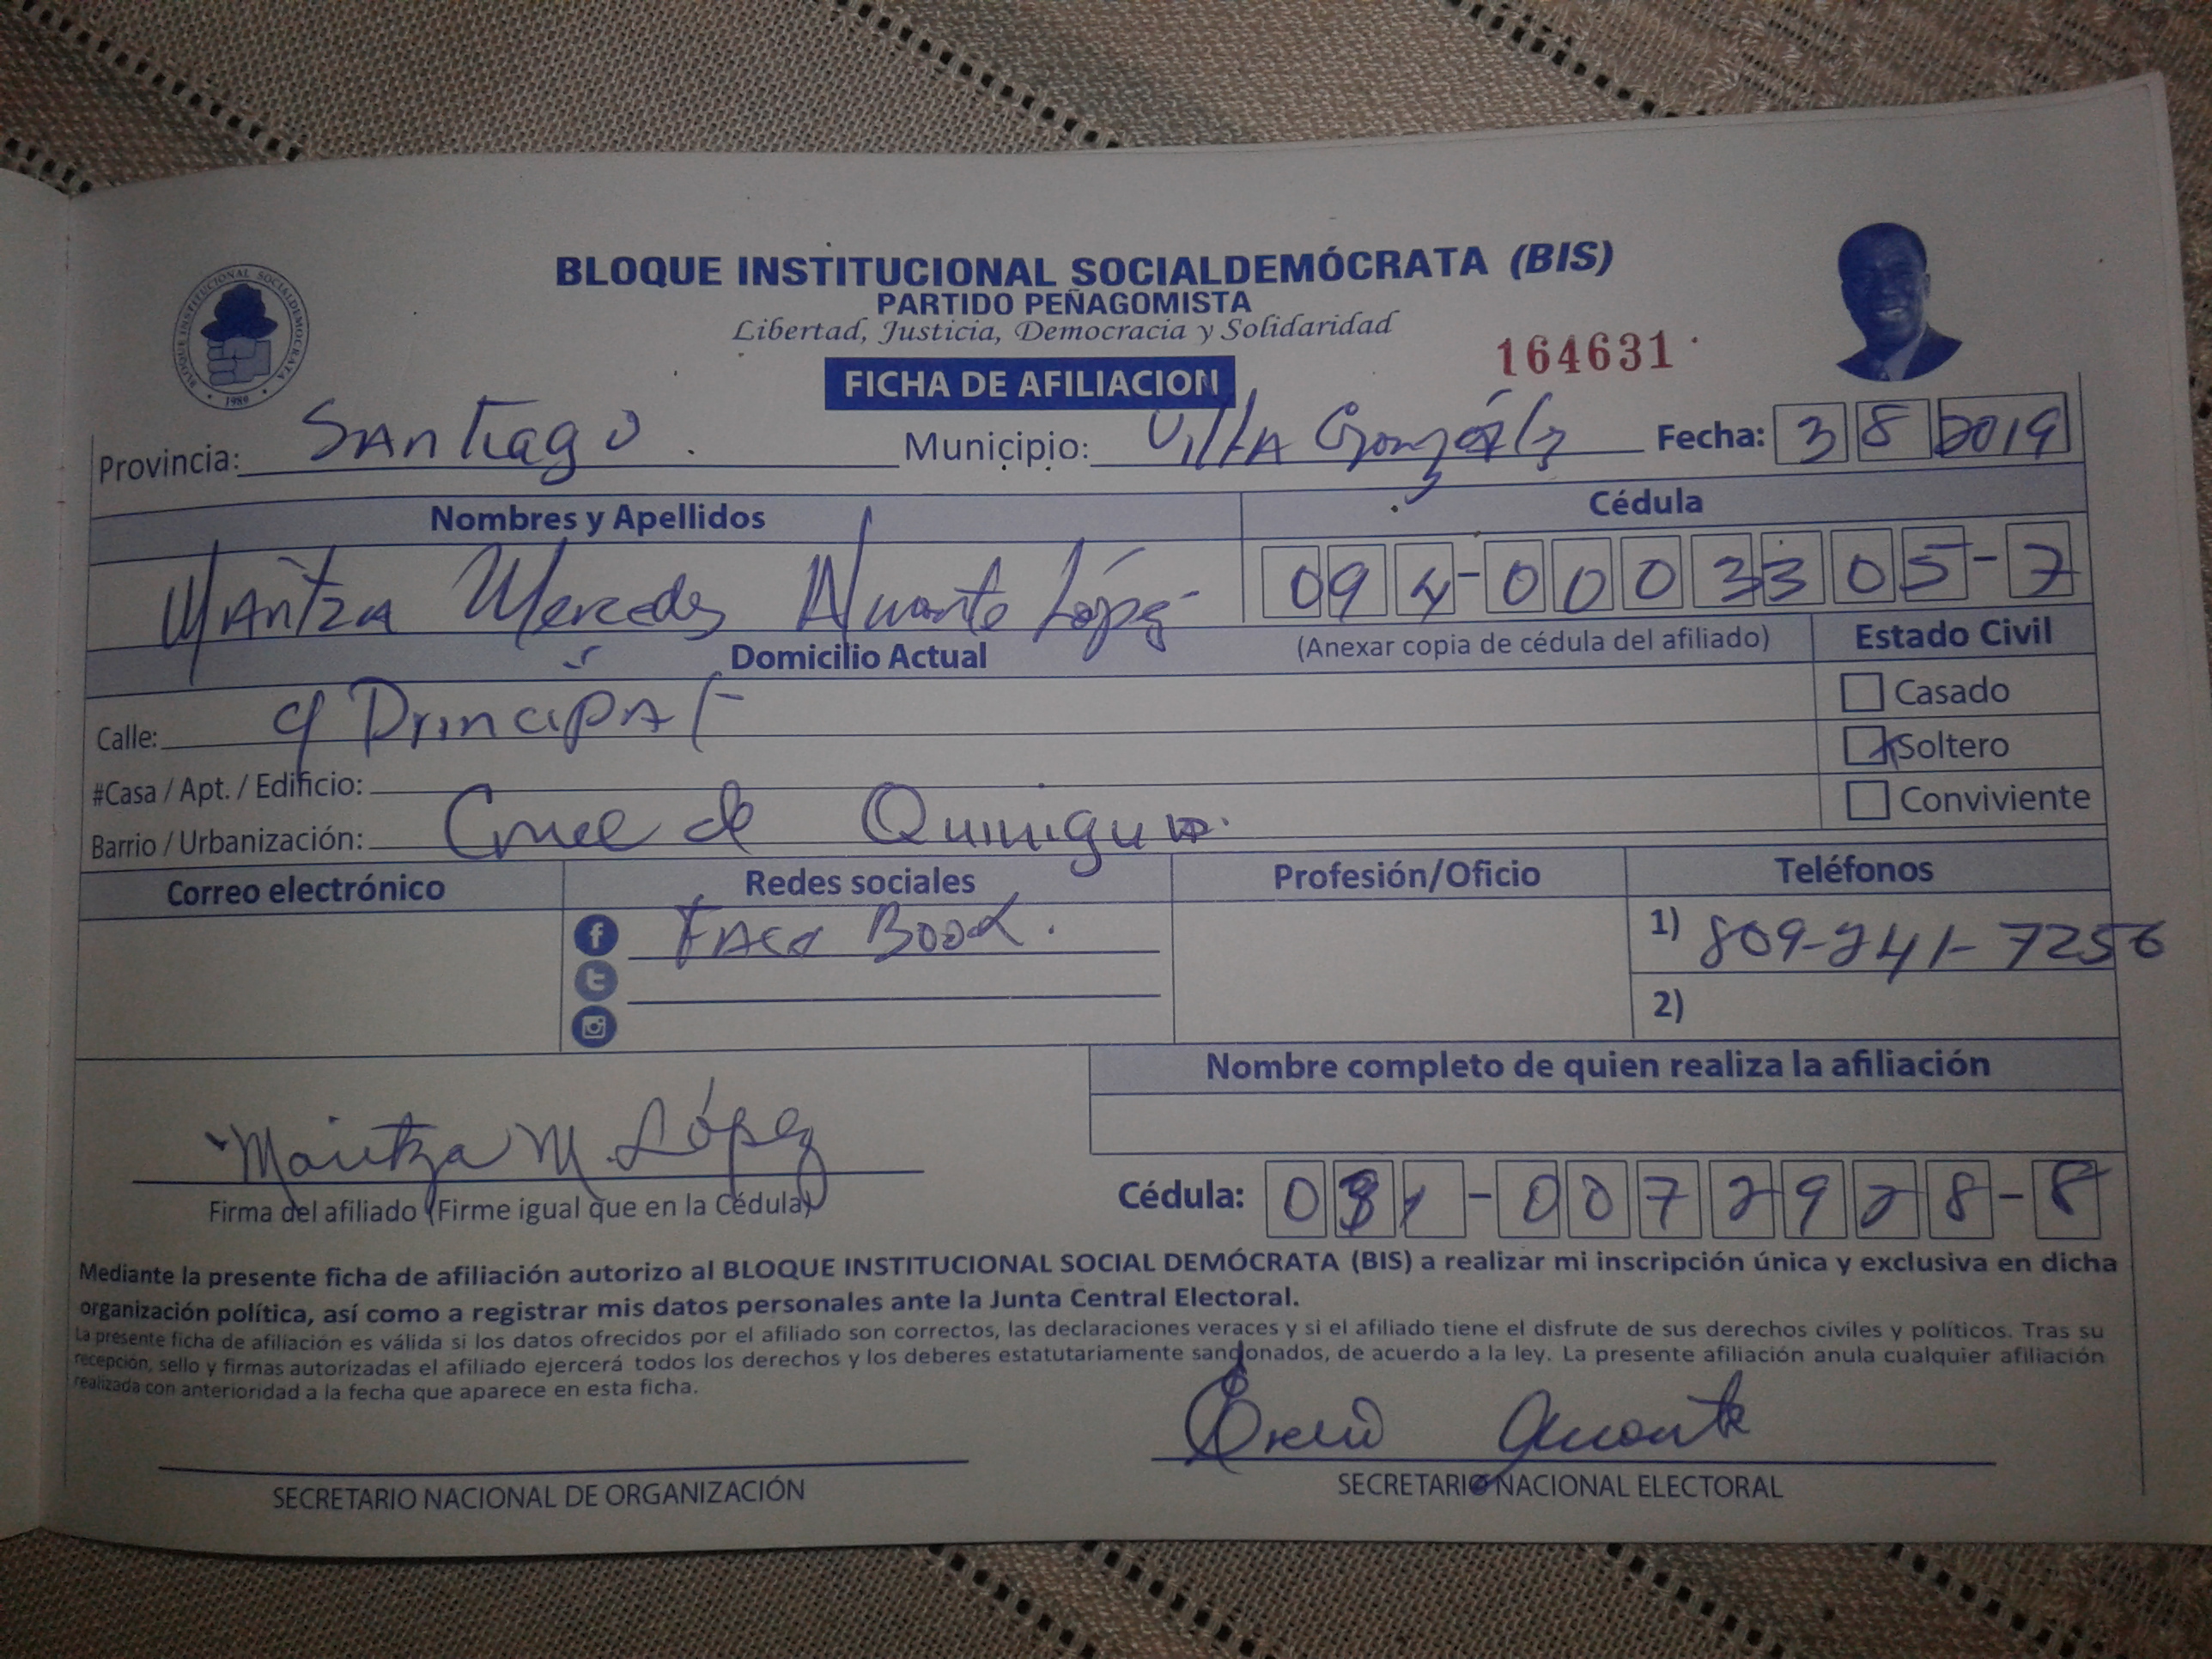 BLOQUE INSTITUCIONAL SOCIALDEMÓCRATA (BIS)
PARTIDO PEÑAGOMISTA
Libertad, Justicia, Democracia y Solidaridad
164631
FICHA DE AFILIACION
BLOQUE INSTITUCIONAL SOCIALDEMOCRATA
1989
Provincia: SAntiago. Municipio: Villa González Fecha: 3 8 2019
Nombres y Apellidos Cédula
MAritza Mercedes López 094-0003305-7
Domicilio Actual (Anexar copia de cédula del afiliado) Estado Civil
Calle: c/ Principal Casado
Soltero
#Casa / Apt. / Edificio:
Conviviente
Barrio / Urbanización: Cruce de
Correo electrónico Redes sociales Profesión/Oficio Teléfonos
Face Book. 1) 809-241-7256
2)
Nombre completo de quien realiza la afiliación
Maritza M. López
Firma del afiliado (Firme igual que en la Cédula) Cédula: 031-0072928-8
Mediante la presente ficha de afiliación autorizo al BLOQUE INSTITUCIONAL SOCIAL DEMÓCRATA (BIS) a realizar mi inscripción única y exclusiva en dicha
organización política, así como a registrar mis datos personales ante la Junta Central Electoral.
La presente ficha de afiliación es válida si los datos ofrecidos por el afiliado son correctos, las declaraciones veraces y si el afiliado tiene el disfrute de sus derechos civiles y políticos. Tras su
recepción, sello y firmas autorizadas el afiliado ejercerá todos los derechos y los deberes estatutariamente sancionados, de acuerdo a la ley. La presente afiliación anula cualquier afiliación
realizada con anterioridad a la fecha que aparece en esta ficha.
SECRETARIO NACIONAL DE ORGANIZACIÓN SECRETARIO NACIONAL ELECTORAL